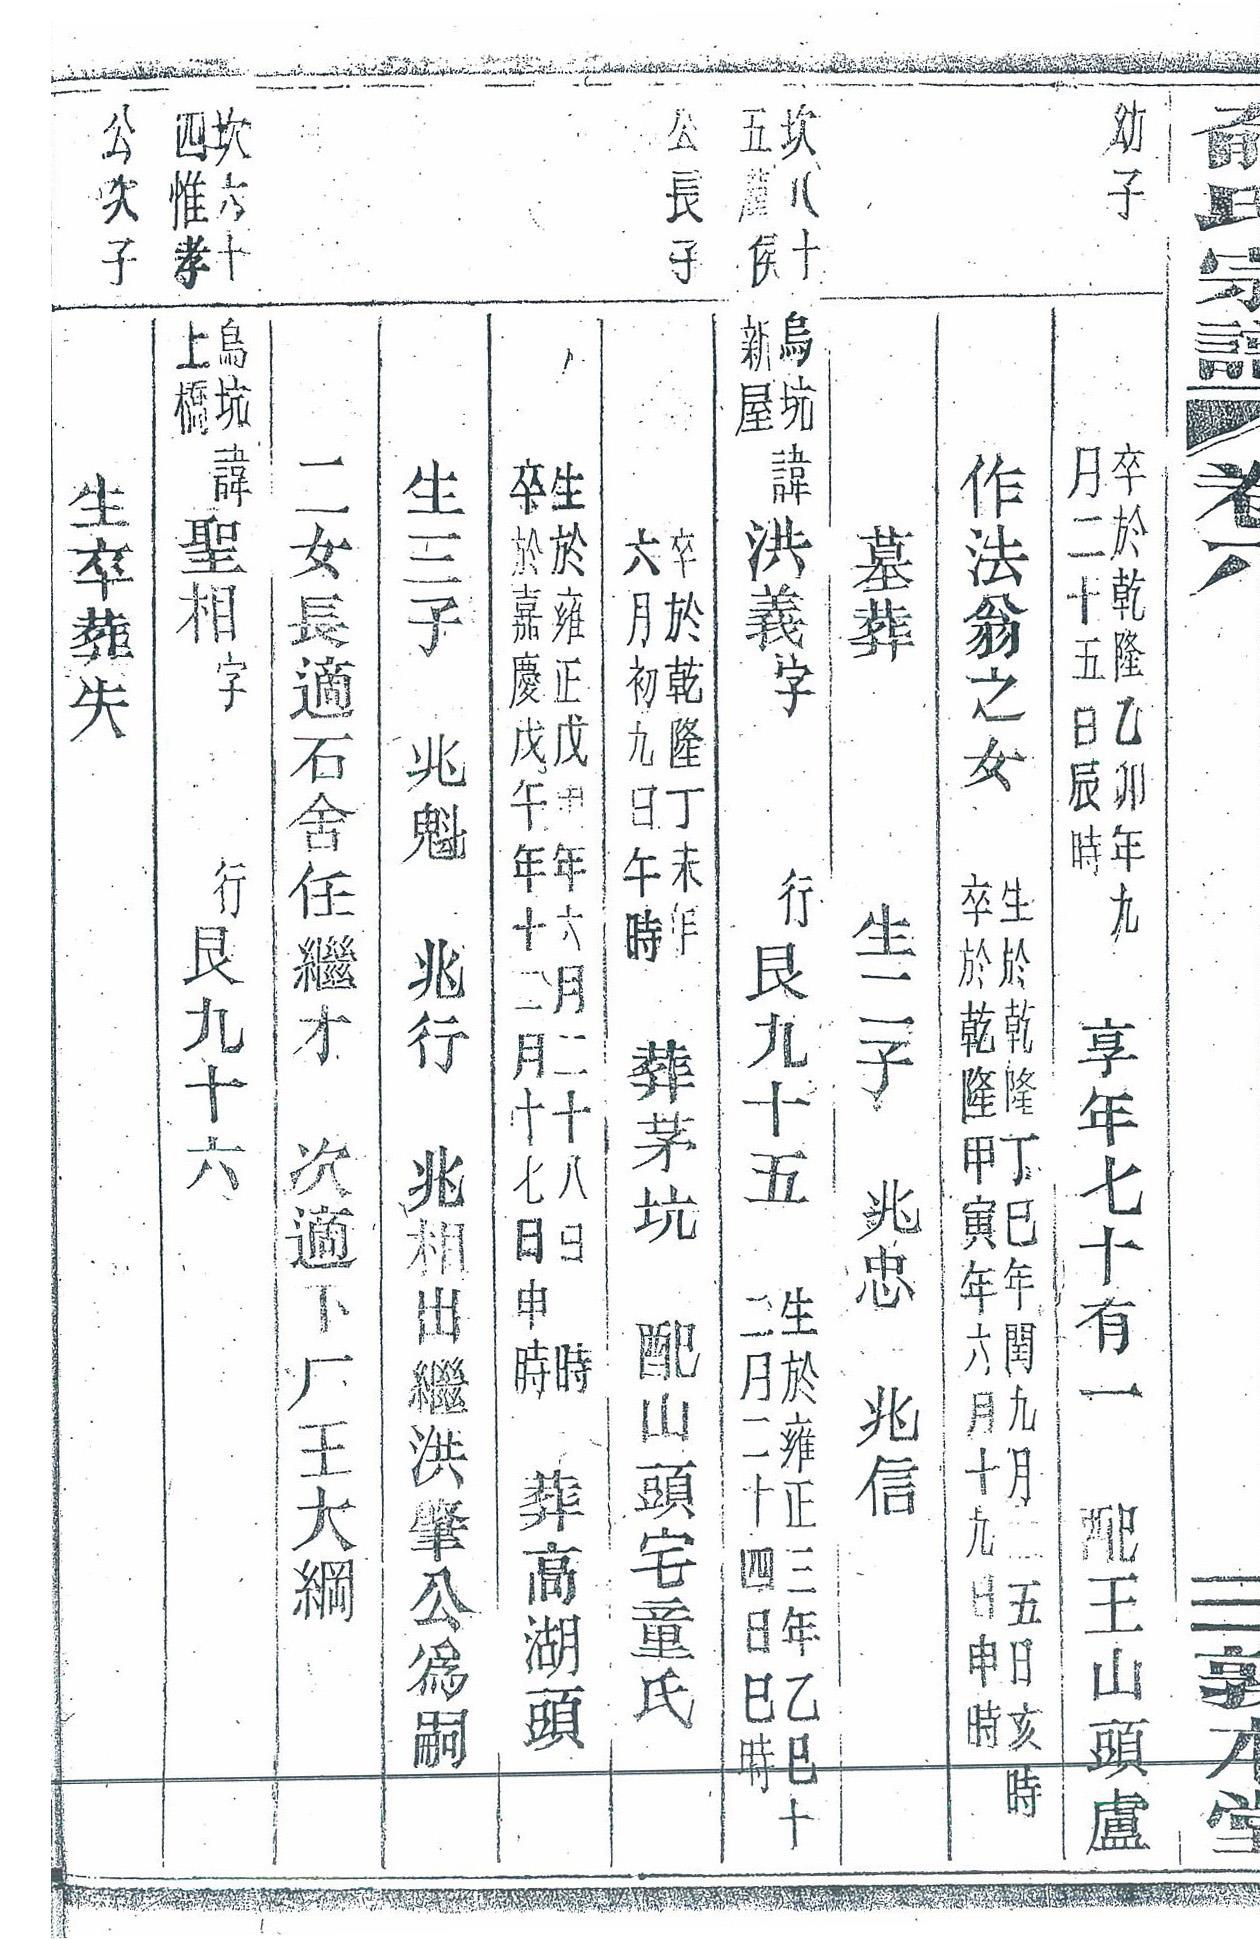 氏宗譜 卷八 三 敦本堂
幼子
卒於乾隆乙卯年九
月二十五日辰時
享年七十有一 配王山頭盧
作法翁之女
生於乾隆丁巳年閏九月二五日亥時
卒於乾隆甲寅年六月十九日申時
墓葬 生二子 兆忠 兆信
坎八十
五 侯
烏坑
新屋
諱洪義字 行艮九十五
生於雍正三年乙巳十
二月二十四日巳時
公長子
卒於乾隆丁未年
六月初九日午時
葬茅坑 配山頭宅童氏
生於雍正戊申年六月二十八日 時
卒於嘉慶戊午年十二月十七日申時
葬高湖頭
生三子 兆魁 兆行 兆相出繼洪肇公為嗣
二女長適石舍任繼才 次適下厂王大綱
坎六十
四惟孝
烏坑
上橋
諱聖相字 行艮九十六
公次子
生卒葬失